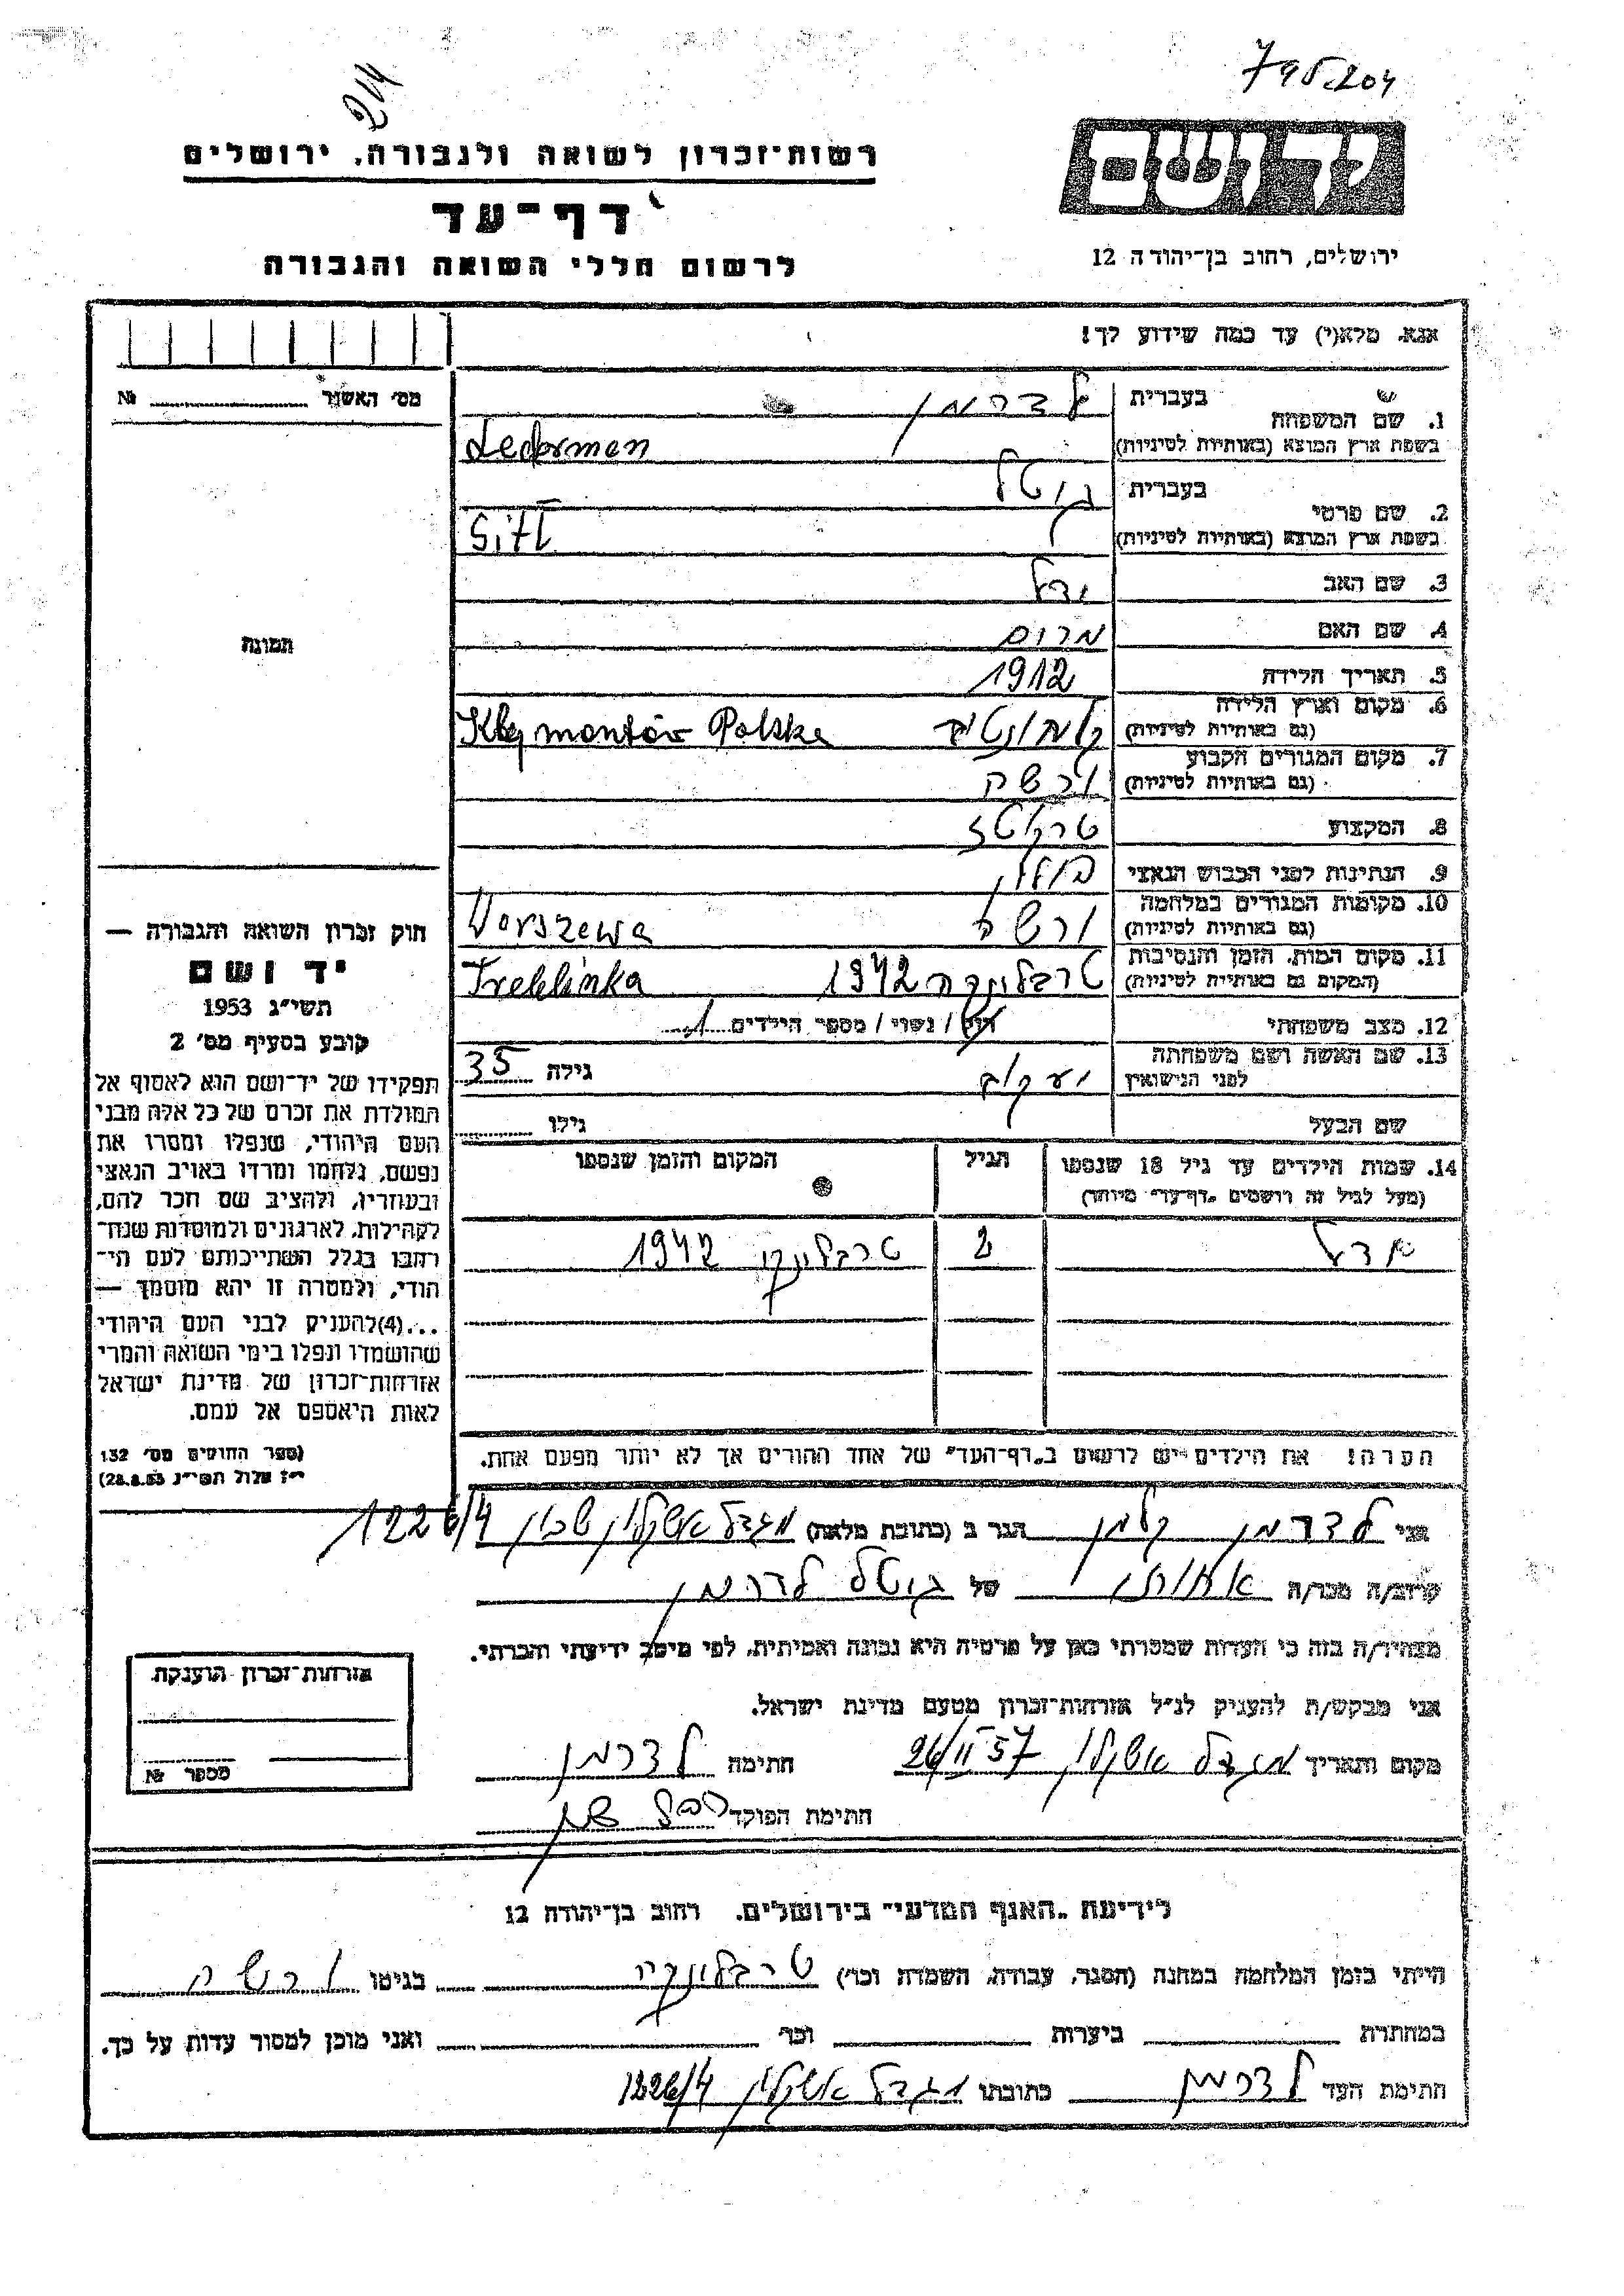 795.204
214
ידושם
רשות־זכרון לשואה ולגבורה, ירושלים
דף־עד
לרשום חללי השואה והגבורה
ירושלים, רחוב בן־יהודה 12
אנא, מלא(י) עד כמה שידוע לך!
מס' האשור № 
1. שם המשפחה בעברית לדרמן
בשפת ארץ המוצא (באותיות לטיניות) Lederman
2. שם פרטי בעברית גיטל
בשפת ארץ המוצא (באותיות לטיניות) Gitl
3. שם האב
4. שם האם מרים
5. תאריך הלידה 1912
6. מקום וארץ הלידה (גם באותיות לטיניות) קלמונטוב Klymontów Polska
7. מקום המגורים הקבוע (גם באותיות לטיניות) ורשה
8. המקצוע
9. הנתינות לפני הכבוש הנאצי פולין
10. מקומות המגורים במלחמה (גם באותיות לטיניות) ורשה Warszawa
11. מקום המות, הזמן והנסיבות (המקום גם באותיות לטיניות) טרבלינקה 1942 Treblinka
12. מצב משפחתי רוק / נשוי / מספר הילדים 1
13. שם האשה ושם משפחתה לפני הנישואין יעקוב גילה 35
שם הבעל גילו
תמונה
14. שמות הילדים עד גיל 18 שנספו הגיל המקום והזמן שנספו
(מעל לגיל זה רושמים "דף־עד" מיוחד)
אדל 2 טרבלינקה 1942
הערה: את הילדים יש לרשום ב"דף־העד" של אחד ההורים אך לא יותר מפעם אחת.
חוק זכרון השואה והגבורה —
יד ושם
תשי"ג 1953
קובע בסעיף מס' 2
תפקידו של יד־ושם הוא לאסוף אל
המולדת את זכרם של כל אלה מבני
העם היהודי, שנפלו ומסרו את
נפשם, נלחמו ומרדו באויב הנאצי
ובעוזריו, ולהציב שם וזכר להם,
לקהילות, לארגונים ולמוסדות שנח־
רבו בגלל השתייכותם לעם הי־
הודי, ולמטרה זו יהא מוסמך —
...(4) להעניק לבני העם היהודי
שהושמדו ונפלו בימי השואה והמרי
אזרחות־זכרון של מדינת ישראל
לאות היאספם אל עמם.
(ספר החוקים מס' 132
י"ז אלול תשי"ג 28.8.53)
אני לדרמן קלמן הגר ב (כתובת מלאה) מגדל אשקלון שכון 1226/4
קרוב/ה מכר/ה של גיטל לדרמן
מצהיר/ה בזה כי העדות שמסרתי כאן על פרטיה היא נכונה ואמיתית, לפי מיטב ידיעתי והכרתי.
אני מבקש/ת להעניק לנ"ל אזרחות־זכרון מטעם מדינת ישראל.
מקום ותאריך מגדל אשקלון 26/II 57 חתימה לדרמן
חתימת הפוקד
אזרחות־זכרון הוענקה
מספר №
לידיעת "האגף המדעי" בירושלים, רחוב בן־יהודה 12
הייתי בזמן המלחמה במחנה (הסגר, עבודה, השמדה וכו') טרבלינקה בגיטו ורשה
במחתרת ביערות וכו' ואני מוכן למסור עדות על כך.
חתימת העד לדרמן כתובתו מגדל אשקלון 1226/4